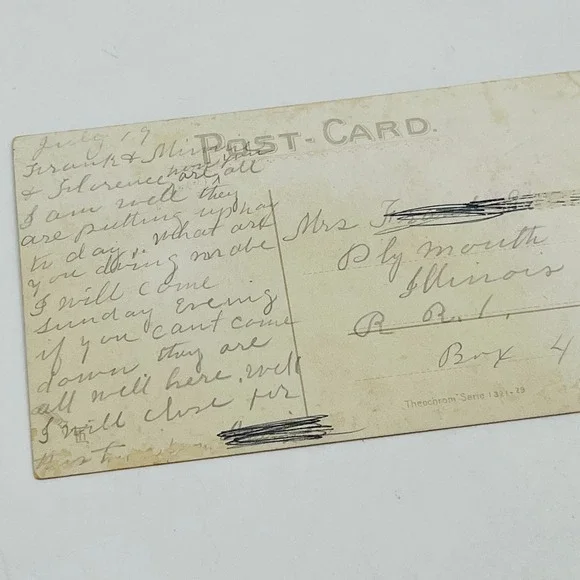 July 19
POST-CARD.
Frank & Minnie
& Florence how are you all
I am well they
are putting up hay
to day. what are
you doing mabe
I will come
Sunday Evening
if you cant come
down they are
all well here. Well
I will close for
Mrs
Plymouth
Illinois
R R. 1.
Box 4
"Theochrom" Serie 1321-29